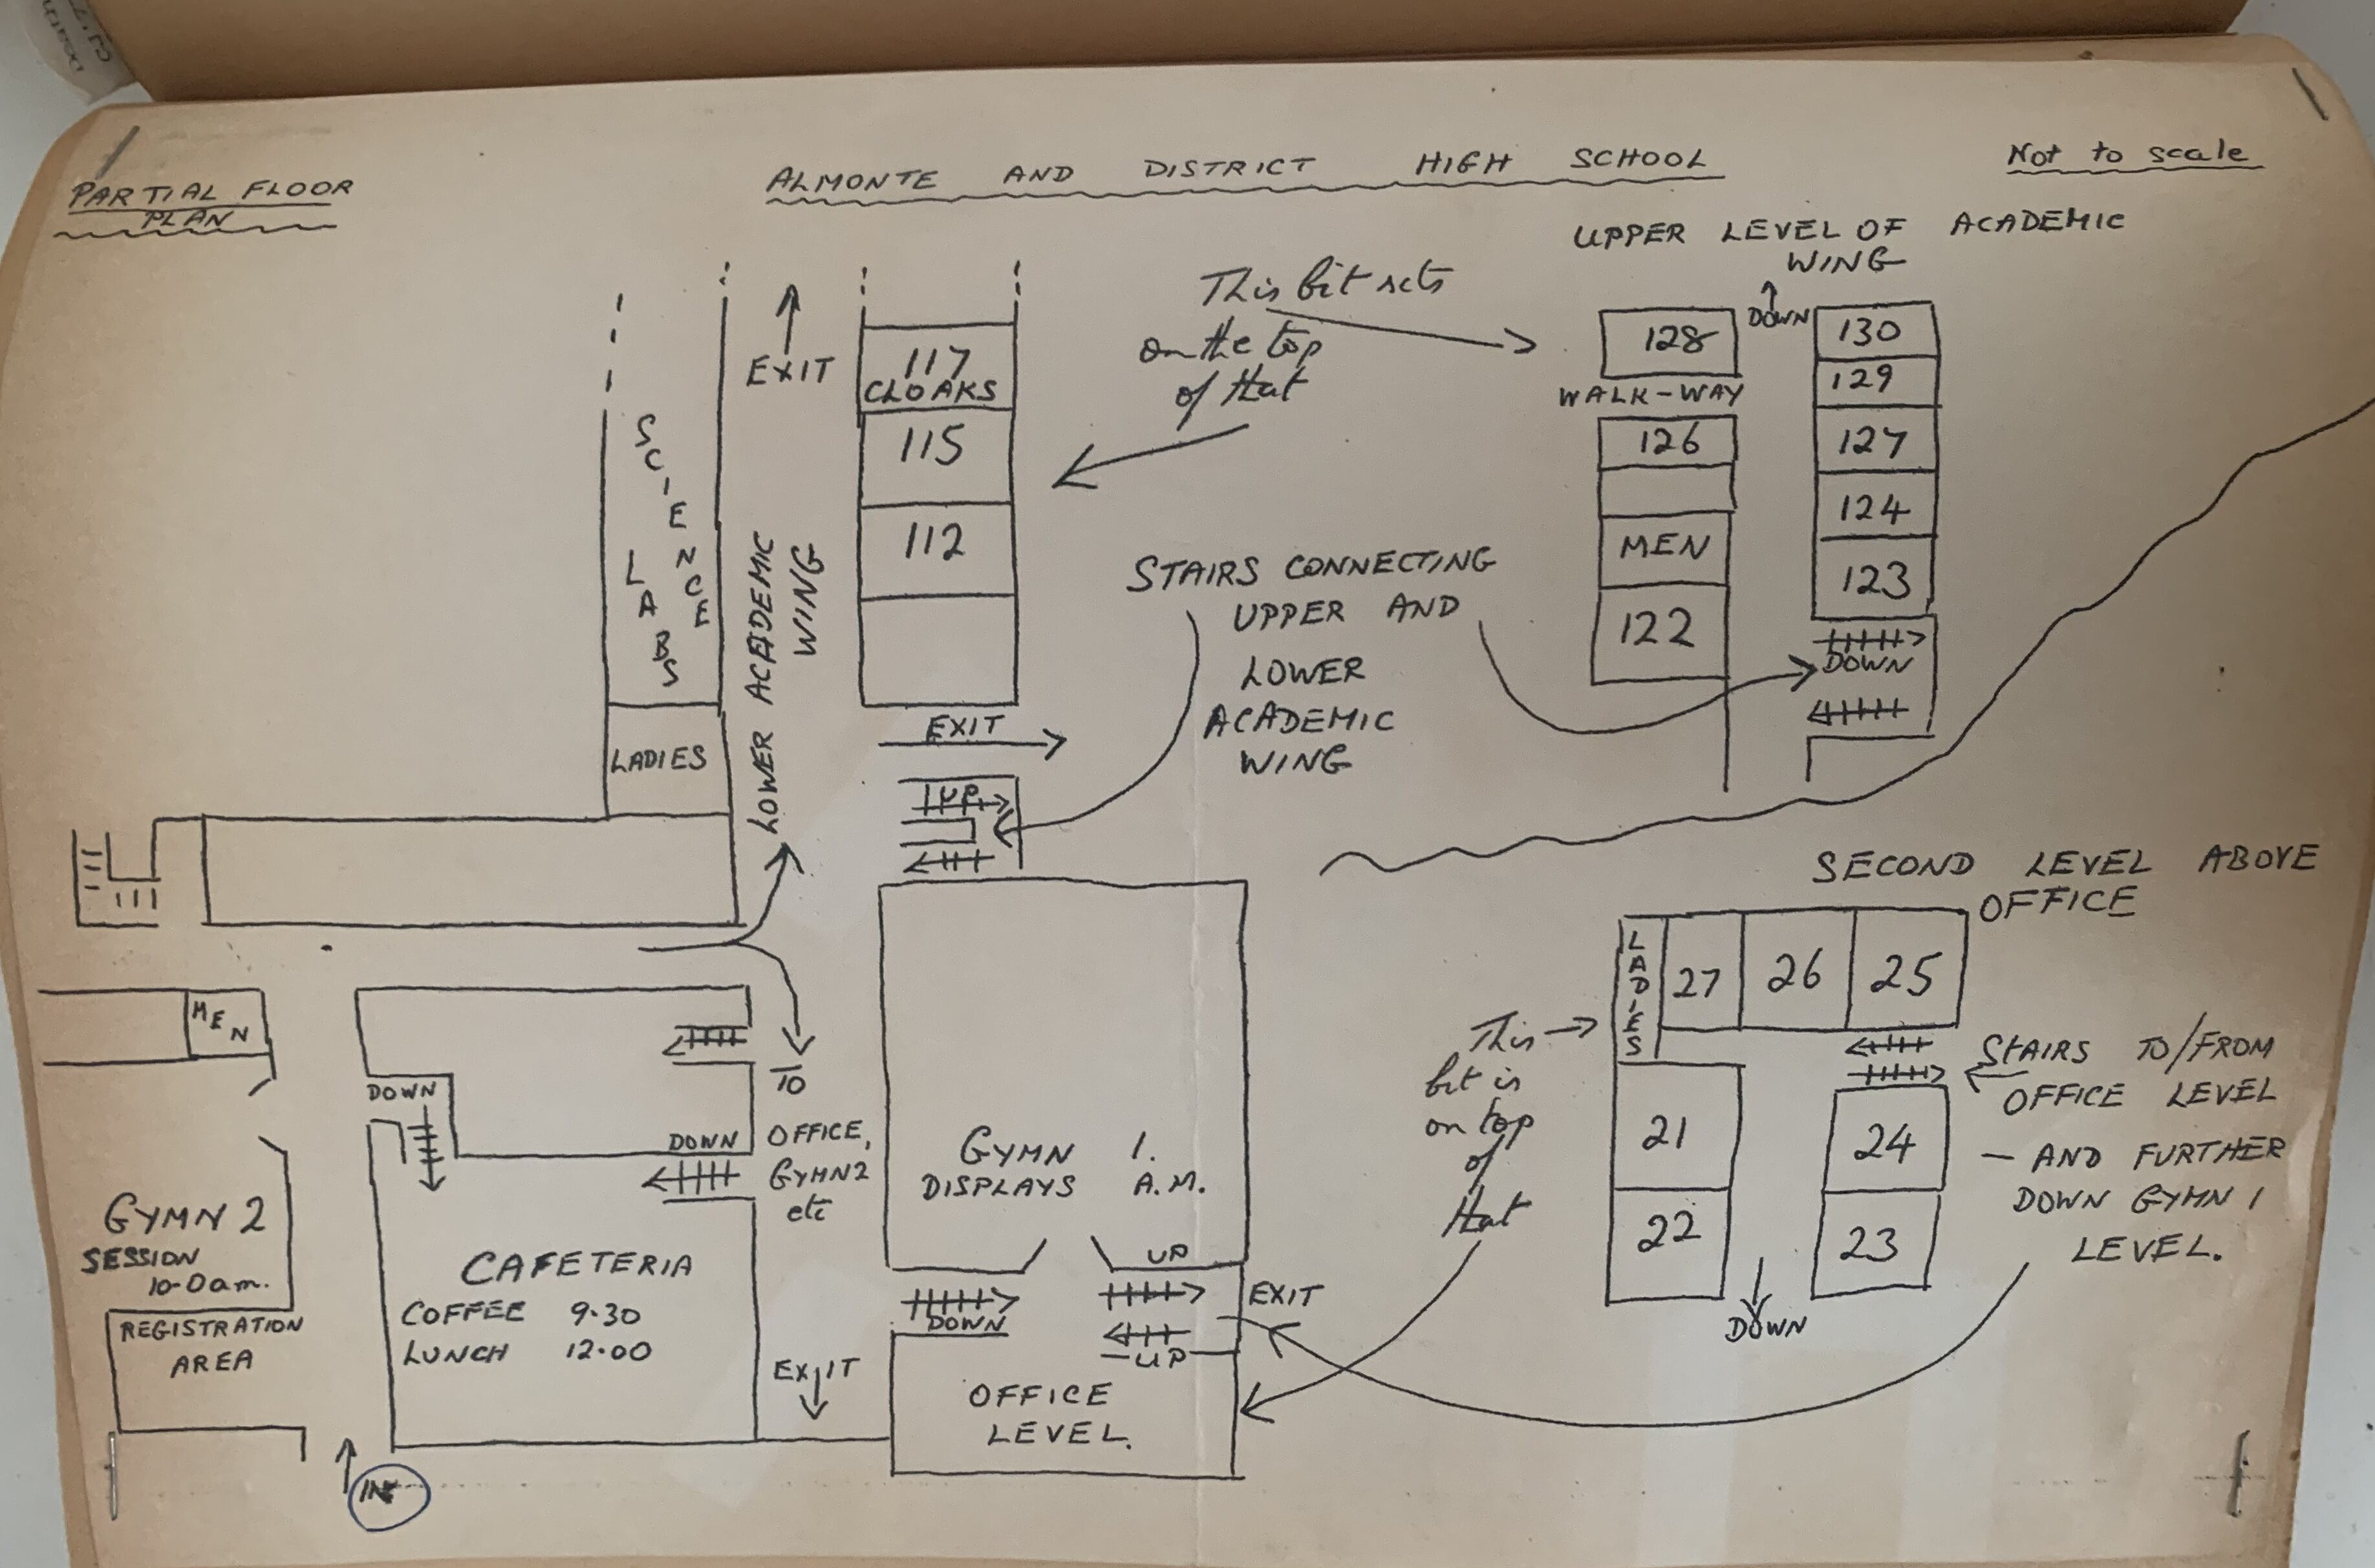 PARTIAL FLOOR
PLAN
ALMONTE AND DISTRICT HIGH SCHOOL
Not to scale
UPPER LEVEL OF ACADEMIC
WING
This bit sets
on the top
of that
EXIT
117
CLOAKS
115
112
SCIENCE
LABS
LADIES
LOWER ACADEMIC
WING
EXIT
UP
STAIRS CONNECTING
UPPER AND
LOWER
ACADEMIC
WING
DOWN
128
WALK-WAY
126
MEN
122
130
129
127
124
123
DOWN
MEN
DOWN
DOWN
TO
OFFICE,
GYMN2
etc
GYMN 2
SESSION
10-0 a.m.
REGISTRATION
AREA
CAFETERIA
COFFEE 9.30
LUNCH 12.00
IN
EXIT
GYMN 1.
DISPLAYS A.M.
UP
DOWN
UP
EXIT
OFFICE
LEVEL.
SECOND LEVEL ABOVE
OFFICE
This
bit is
on top
of
that
LADIES
27
26
25
21
22
24
23
DOWN
STAIRS TO/FROM
OFFICE LEVEL
— AND FURTHER
DOWN GYMN 1
LEVEL.